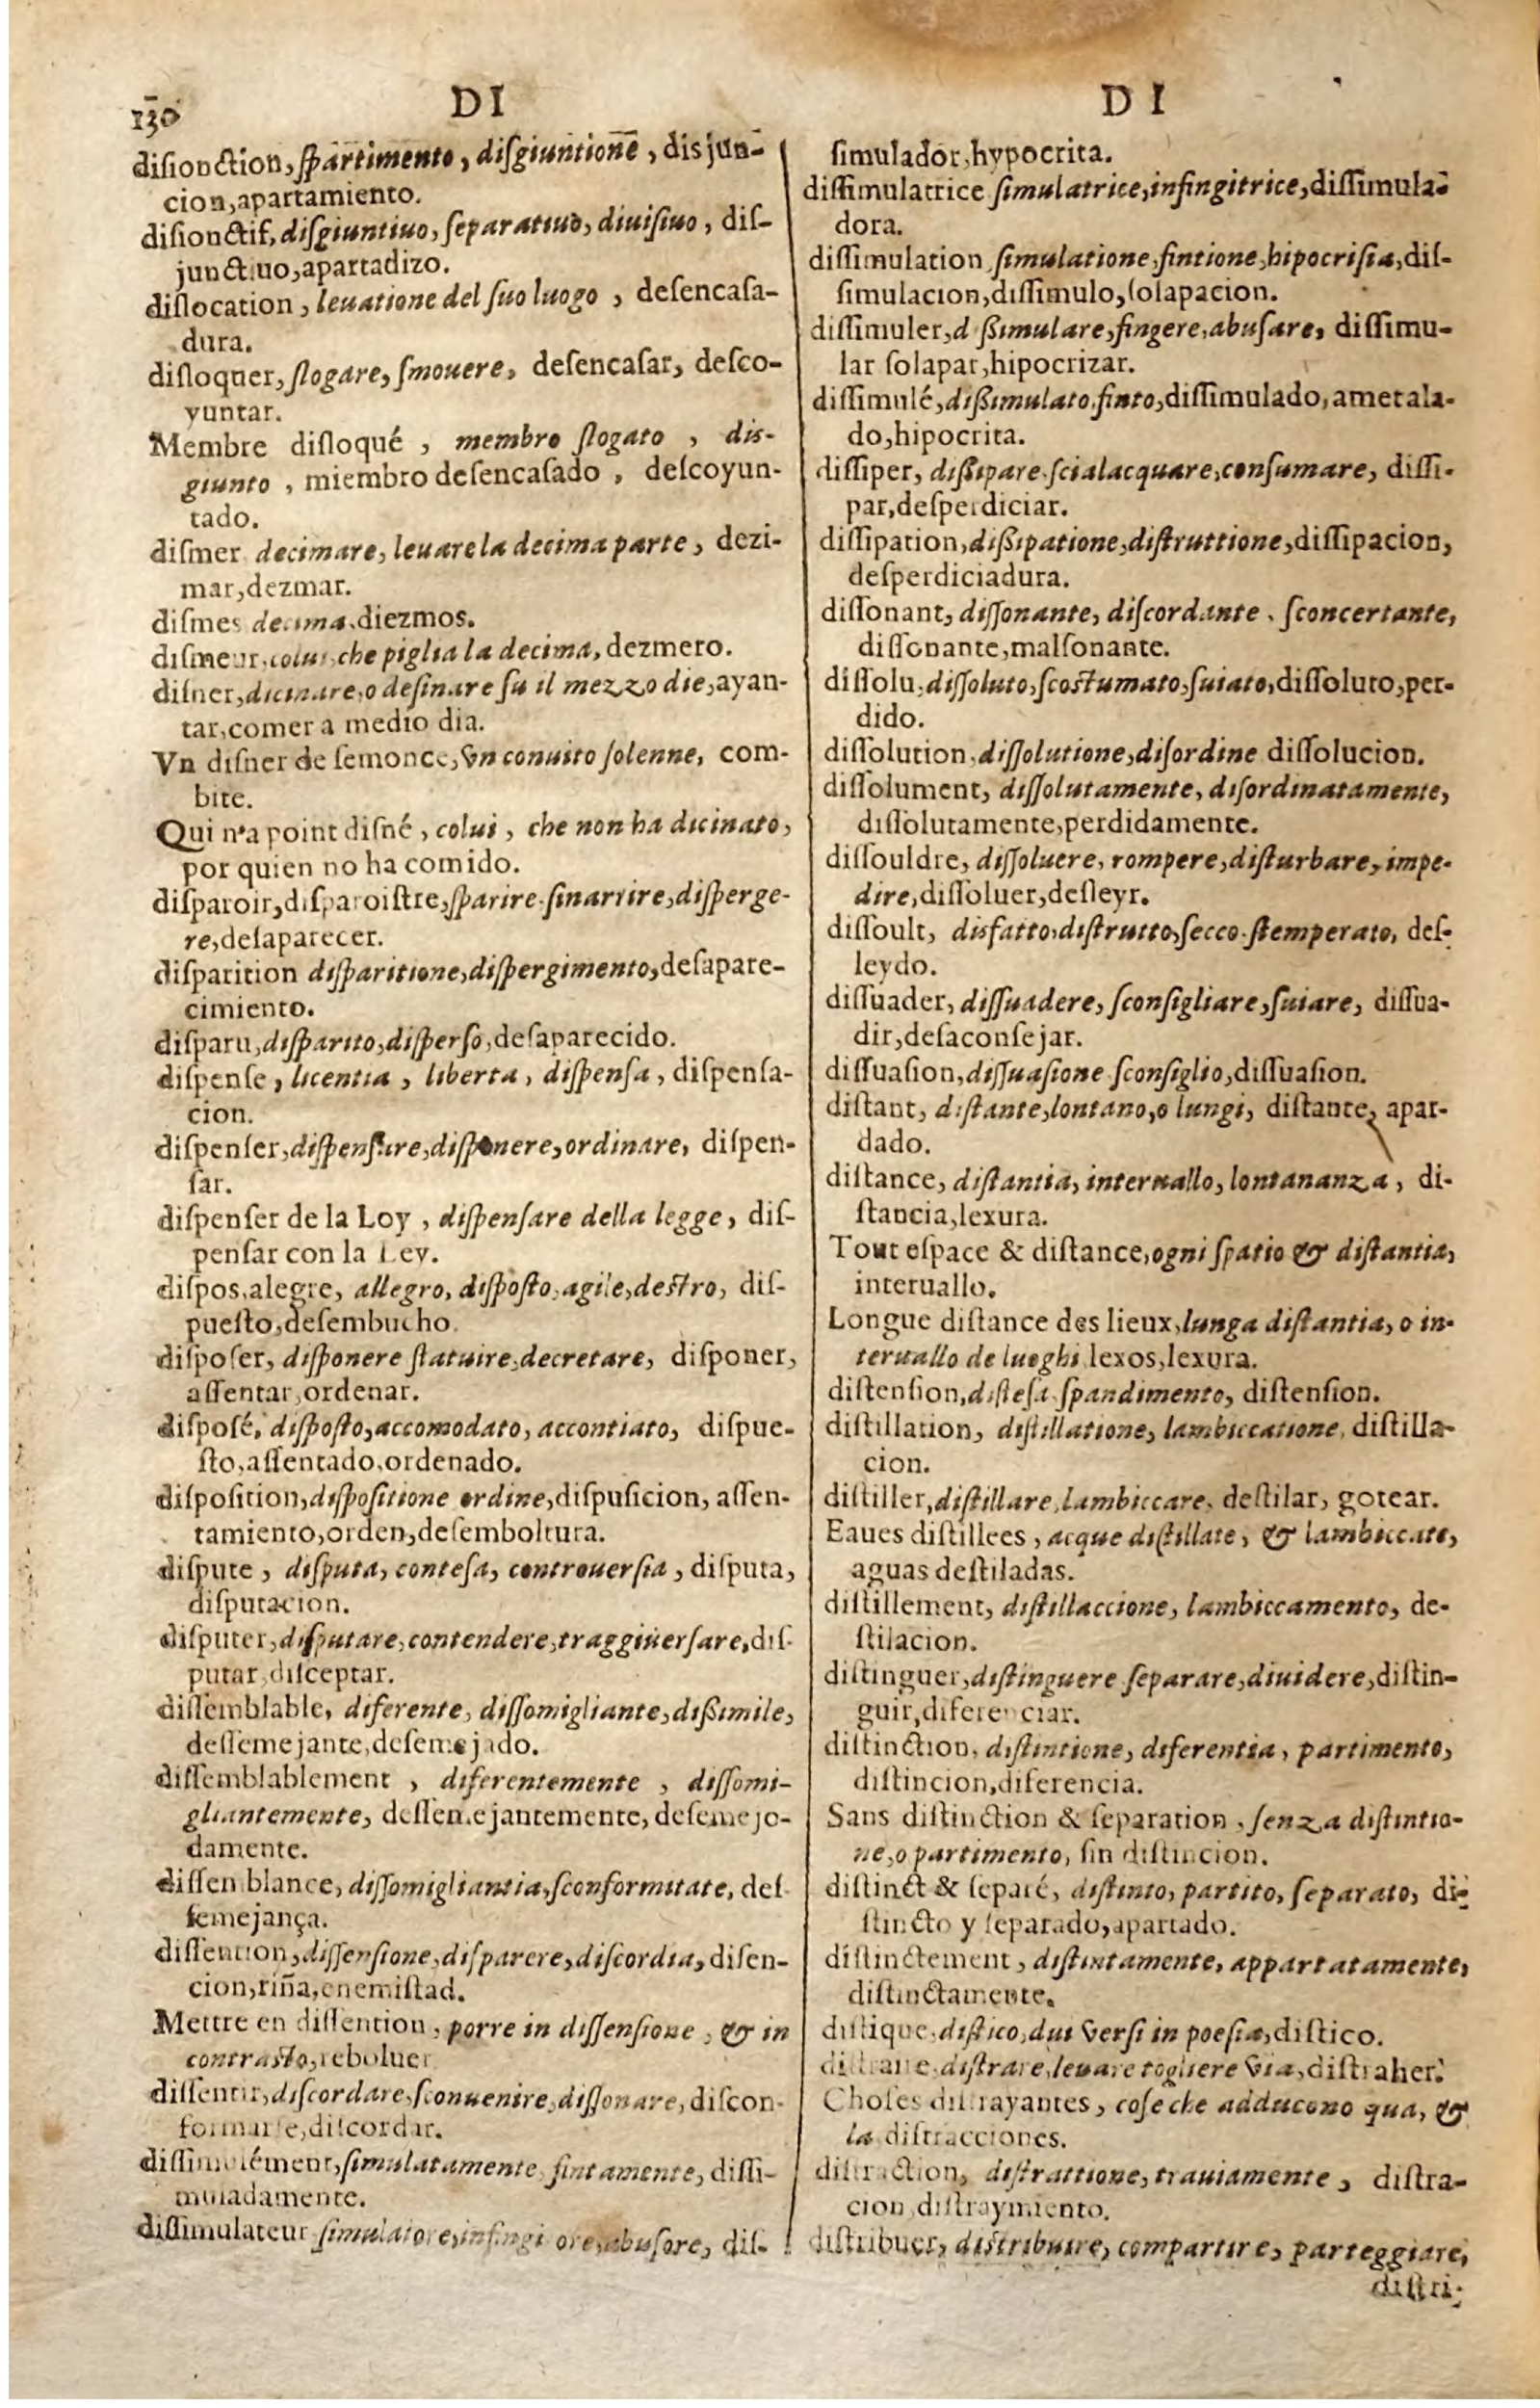 130
DI
disionction, ſpartimento, diſgiuntione, disjun-
cion, apartamiento.
diſionctif, diſgiuntiuo, ſeparatiuo, diuiſiuo, diſ-
junctiuo, apartadizo.
diſlocation, leuatione del ſuo luogo, deſencaſa-
dura.
diſloquer, ſlogare, ſmouere, deſencaſar, deſco-
yuntar.
Membre diſloqué, membro ſlogato, dis-
giunto, miembro deſencaſado, deſcoyun-
tado.
diſmer decimare, leuare la decima parte, dezi-
mar, dezmar.
diſmes decima, diezmos.
diſmeur, colui, che piglia la decima, dezmero.
diſner, dicinare, o deſinare ſu il mezzo die, ayan-
tar, comer a medio dia.
Vn diſner de ſemonce, vn conuito ſolenne, com-
bite.
Qui n'a point diſné, colui, che non ha dicinato,
por quien no ha comido.
diſparoir, diſparoiſtre, ſparire. ſinarrire, diſperge-
re, deſaparecer.
diſparition diſparitione, diſpergimento, deſapare-
cimiento.
diſparu, diſparito, diſperſo, deſaparecido.
diſpenſe, licentia, liberta, diſpenſa, diſpenſa-
cion.
diſpenſer, diſpenſare, diſponere, ordinare, diſpen-
ſar.
diſpenſer de la Loy, diſpenſare della legge, diſ-
penſar con la Ley.
diſpos, alegre, allegro, diſpoſto, agile, deſtro, diſ-
pueſto, deſembucho.
diſpoſer, diſponere ſtatuire, decretare, diſponer,
aſſentar, ordenar.
diſpoſé, diſpoſto, accomodato, accontiato, diſpue-
ſto, aſſentado, ordenado.
diſpoſition, diſpoſitione ordine, diſpuſicion, aſſen-
tamiento, orden, deſemboltura.
diſpute, diſputa, conteſa, controuerſia, diſputa,
diſputacion.
diſputer, diſputare, contendere, traggiuerſare, diſ-
putar, diſceptar.
diſſemblable, diferente, diſſomigliante, diſſimile,
deſſemejante, deſemejado.
diſſemblablement, diferentemente, diſſomi-
gliantemente, deſſemejantemente, deſemejo-
damente.
diſſemblance, diſſomigliantia, ſconformitate, deſ-
ſemejança.
diſſention, diſſenſione, diſparere, diſcordia, diſen-
cion, riña, enemiſtad.
Mettre en diſſention, porre in diſſenſione, & in
contraſto, reboluer
diſſentir, diſcordare, ſconuenire, diſſonare, diſcon-
formarſe, diſcordar.
diſſimulément, ſimulatamente, fintamente, diſſi-
muladamente.
diſſimulateur ſimulatore, infingi ore, abuſore, diſ-
DI
ſimulador, hypocrita.
diſſimulatrice ſimulatrice, infingitrice, diſſimula-
dora.
diſſimulation ſimulatione, fintione, hipocriſia, diſ-
ſimulacion, diſſimulo, ſolapacion.
diſſimuler, d ſſimulare, fingere, abuſare, diſſimu-
lar ſolapar, hipocrizar.
diſſimulé, diſſimulato, finto, diſſimulado, ametala-
do, hipocrita.
diſſiper, diſſipare. ſcialacquare, conſumare, diſſi-
par, deſperdiciar.
diſſipation, diſſipatione, diſtruttione, diſſipacion,
deſperdiciadura.
diſſonant, diſſonante, diſcordante. ſconcertante,
diſſonante, malſonante.
diſſolu, diſſoluto, ſcoſtumato, ſuiato, diſſoluto, per-
dido.
diſſolution, diſſolutione, diſordine diſſolucion.
diſſolument, diſſolutamente, diſordinatamente,
diſſolutamente, perdidamente.
diſſouldre, diſſoluere, rompere, diſturbare, impe-
dire, diſſoluer, deſleyr.
diſſoult, disfatto, diſtrutto, ſecco. ſtemperato, deſ-
leydo.
diſſuader, diſſuadere, ſconſigliare, ſuiare, diſſua-
dir, deſaconſejar.
diſſuaſion, diſſuaſione ſconſiglio, diſſuaſion.
diſtant, diſtante, lontano, o lungi, diſtante, apar-
dado.
diſtance, diſtantia, interuallo, lontananza, di-
ſtancia, lexura.
Tout eſpace & diſtance, ogni ſpatio & diſtantia,
interuallo.
Longue diſtance des lieux, lunga diſtantia, o in-
teruallo de lueghi lexos, lexura.
diſtenſion, diſteſa. ſpandimento, diſtenſion.
diſtillation, diſtillatione, lambiccatione, diſtilla-
cion.
diſtiller, diſtillare, lambiccare, deſtilar, gotear.
Eaues diſtillees, acque diſtillate, & lambiccate,
aguas deſtiladas.
diſtillement, diſtillaccione, lambiccamento, de-
ſtilacion.
diſtinguer, diſtinguere ſeparare, diuidere, diſtin-
guir, diferenciar.
diſtinction, diſtintione, diferentia, partimento,
diſtincion, diferencia.
Sans diſtinction & ſeparation, ſenza diſtintio-
ne, o partimento, ſin diſtincion.
diſtinct & ſeparé, diſtinto, partito, ſeparato, di-
ſtincto y ſeparado, apartado.
diſtinctement, diſtintamente, appartatamente,
diſtinctamente.
diſtique, diſtico, dui verſi in poeſia, diſtico.
diſtraire, diſtrare, leuare togliere via, diſtraher.
Choſes diſtrayantes, coſe che adducono qua, &
la diſtracciones.
diſtraction, diſtrattione, trauiamente, diſtra-
cion, diſtraymiento.
diſtribuer, diſtribuire, compartire, parteggiare,
diſtri-